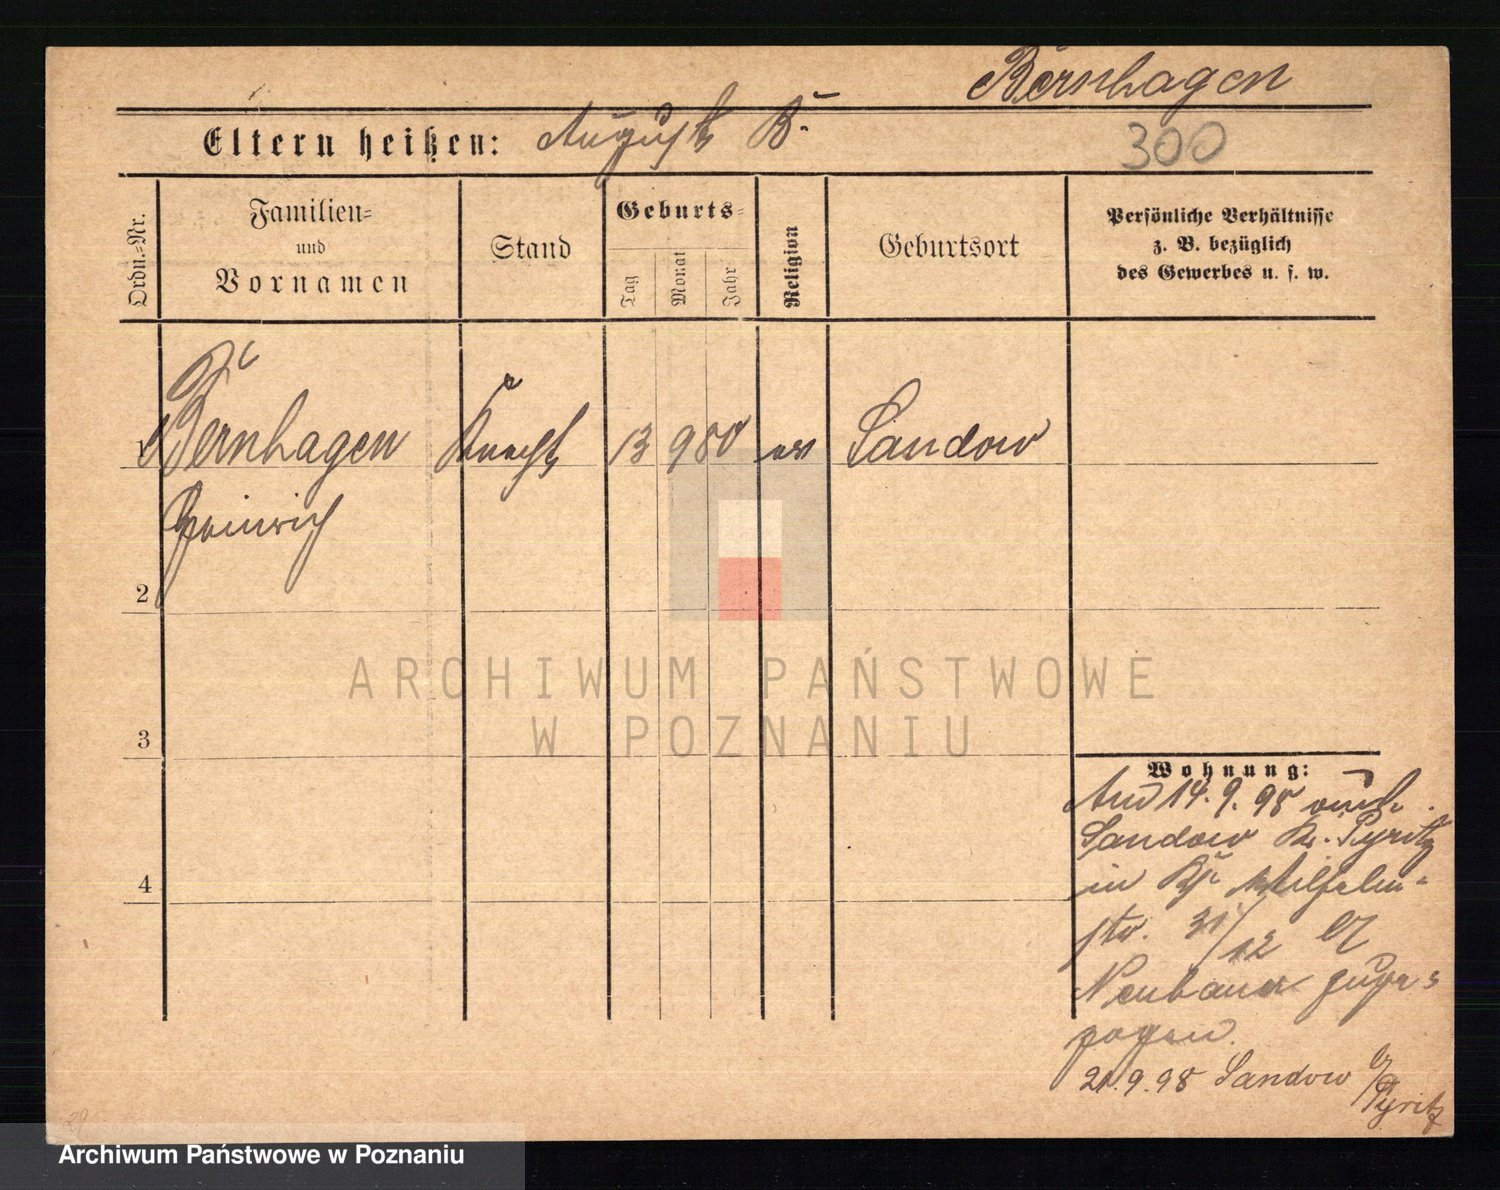 Bernhagen
Eltern heißen: August B.
300
Ordn.-Nr.
Familien-
und
Vornamen
Stand
Geburts-
Tag
Monat
Jahr
Religion
Geburtsort
Persönliche Verhältnisse
z. B. bezüglich
des Gewerbes u. s. w.
1
Bernhagen Knecht 13 9 80 ev Sandow
Heinrich
2
3
4
ARCHIWUM PAŃSTWOWE
W POZNANIU
Wohnung:
14. 9. 98
Sandow Kr. Pyritz
in Wilhelm-
str. 31/12 b/
Neubauer zuge-
zogen.
21. 9. 98 Sandow b/
Pyritz
29
Archiwum Państwowe w Poznaniu